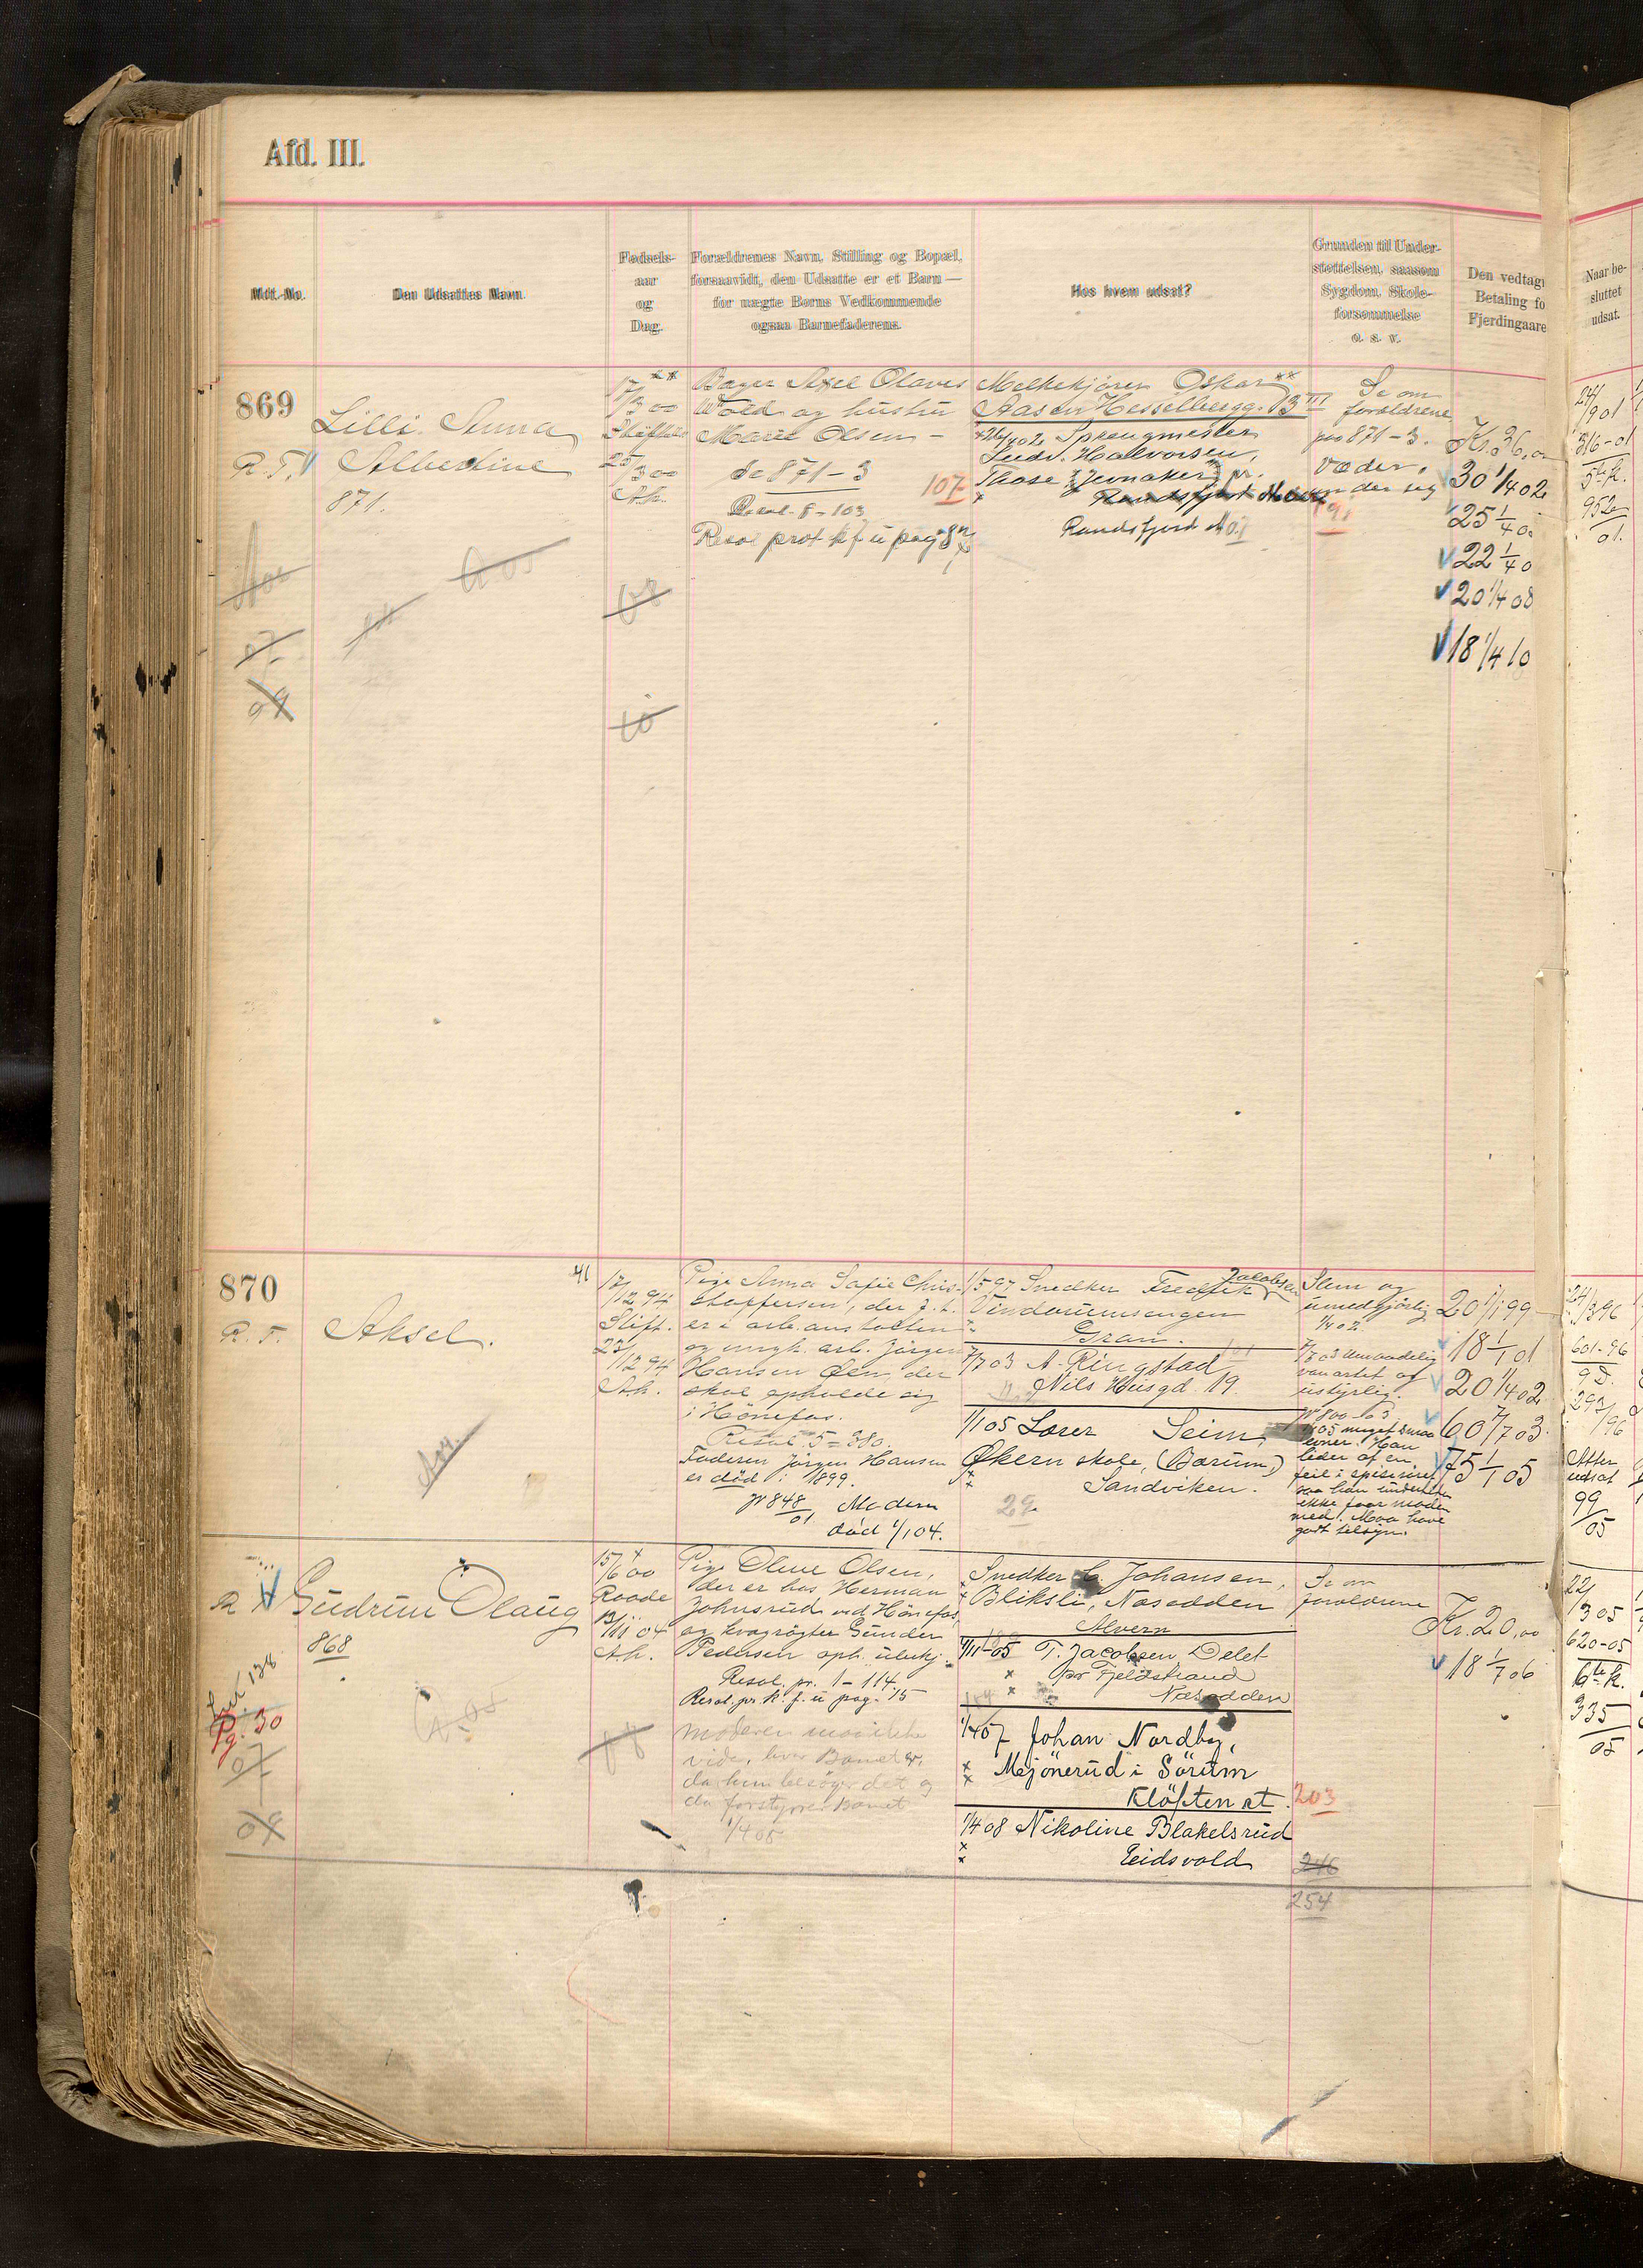 Afd. III.
Mdt.-No.
Den Udsattes Navn.
Fødsels-
aar
og
Dag.
Forældrenes Navn, Stilling og Bopæl,
forsaavidt, den Udsatte er et Barn —
for uægte Børns Vedkommende
ogsaa Barnefaderens.
Hos hvem udsat?
Grunden til Under-
støttelsen, saasom
Sygdom, Skole-
forsømmelse
o. s. v.
Den vedtagn
Betaling fo
Fjerdingaare
Naar be-
sluttet
udsat.
869
R. T.
Lilli Anna
Albertine
871.
17/3 00
25/3 00
A.k.
Bager Axel Olaves
Wold og hustru
Marie Olsen —
Se 871–3
Resol. 8–103
Resol prot k f ü pag 8
107
Melkekjører Oskar
Aasen Hesselbergg. 13 III
Sprengmester
Ludv. Halvorsen,
Those Jevnaker pr.
Randsfjord No 1
Se om
forældrene
paa 871–3.
91
Kr. 36,00
30 1/4 02
25 1/4 0
22 1/4 0
20 1/4 08
18 1/4 10
24/9 01
316–01
5te k.
952
01.
07
08
09
10
870
R. T.
Aksel.
41
17/12 94
Stift.
23/12 94
A.k.
Pige Anna Sofie Chris-
stoffersen, der z. t.
er i arb. anstalten
og ungk. arb. Jørgen
Hansen Øen, der
skal opholde sig
i Hønefos.
Resol. 5–380.
Faderen Jørgen Hansen
er død i 1899.
W 848/01 Moderen
død 1/1 04.
1/5 97 Snedker Fredrik Jacobsen
Vindorumsengen
Gran.
101
7/7 03 A. Ringstad
Nils Husgd. 19.
1/1 05 Lærer Seim,
Økern skole, (Bærum,)
Sandviken.
29.
Slem og
umedgjørlig
1/4 02
vanartet og
ustyrlig.
W 800–03
1/1 05 meget smaa
evner. Han
lider af en
feil i spiserøret
saa han undertiden
ikke faar maden
ned. Maa have
godt tilsyn.
20 1/1 99
18 1/1 01
20 1/4 02
60 7/7 03
75 1/1 05
24/3 96
601–96
9 D.
293/96
Atter
udsat
99/05
R
Gudrun Olaug
868
138
Pg. 30
07
08
15/6 00
Raade
13/11 04
A.k.
Pige Oline Olsen,
der er hos Herman
Johnsrud ved Hønefos,
og kvægrøgter Gunder
Pedersen oph. ubekj.
Resol. pr. 1–114.
Resol. pr. k. f. ü pag. 15
Moderen maa ikke
vide, hvor Barnet er,
da hun besøger det og
da forstyrrer Barnet
1/4 05
Snedker C. Johansen,
Bliksli, Næsodden
Alvern
1/11–05 T. Jacobsen Delet
pr Fjeldstrand
Næsodden
1/4 07 Johan Nordby,
Mejønerud i Sørum
Kløften st.
203
1/4 08 Nikoline Blakelsrud
Eidsvold
246
254
Se om
forældrene
Kr. 20,00
18 1/7 06
22/3 05
620–05
6te k.
335
05